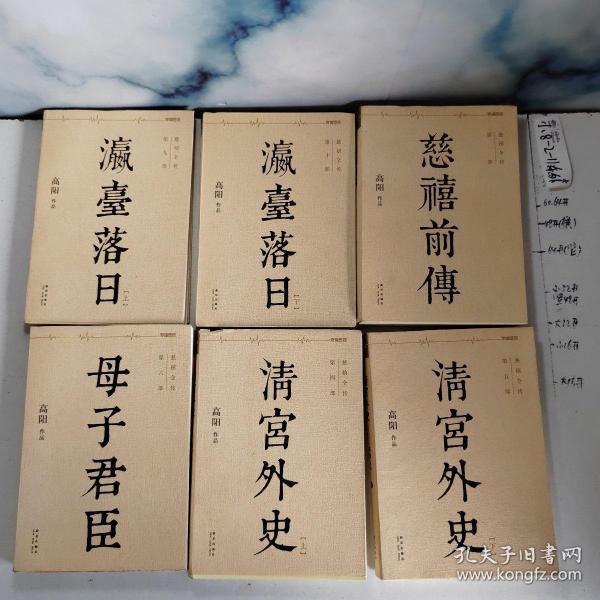 慈禧全传
第九部
瀛臺落日
[上]
高阳
作品
慈禧全传
第十部
瀛臺落日
[下]
高阳
作品
慈禧全传
第一部
慈禧前傳
高阳
作品
慈禧全传
第六部
母子君臣
高阳
作品
慈禧全传
第四部
清宮外史
[上]
高阳
作品
慈禧全传
第五部
清宮外史
[下]
高阳
作品
孔夫子旧书网
www.kongfz.com